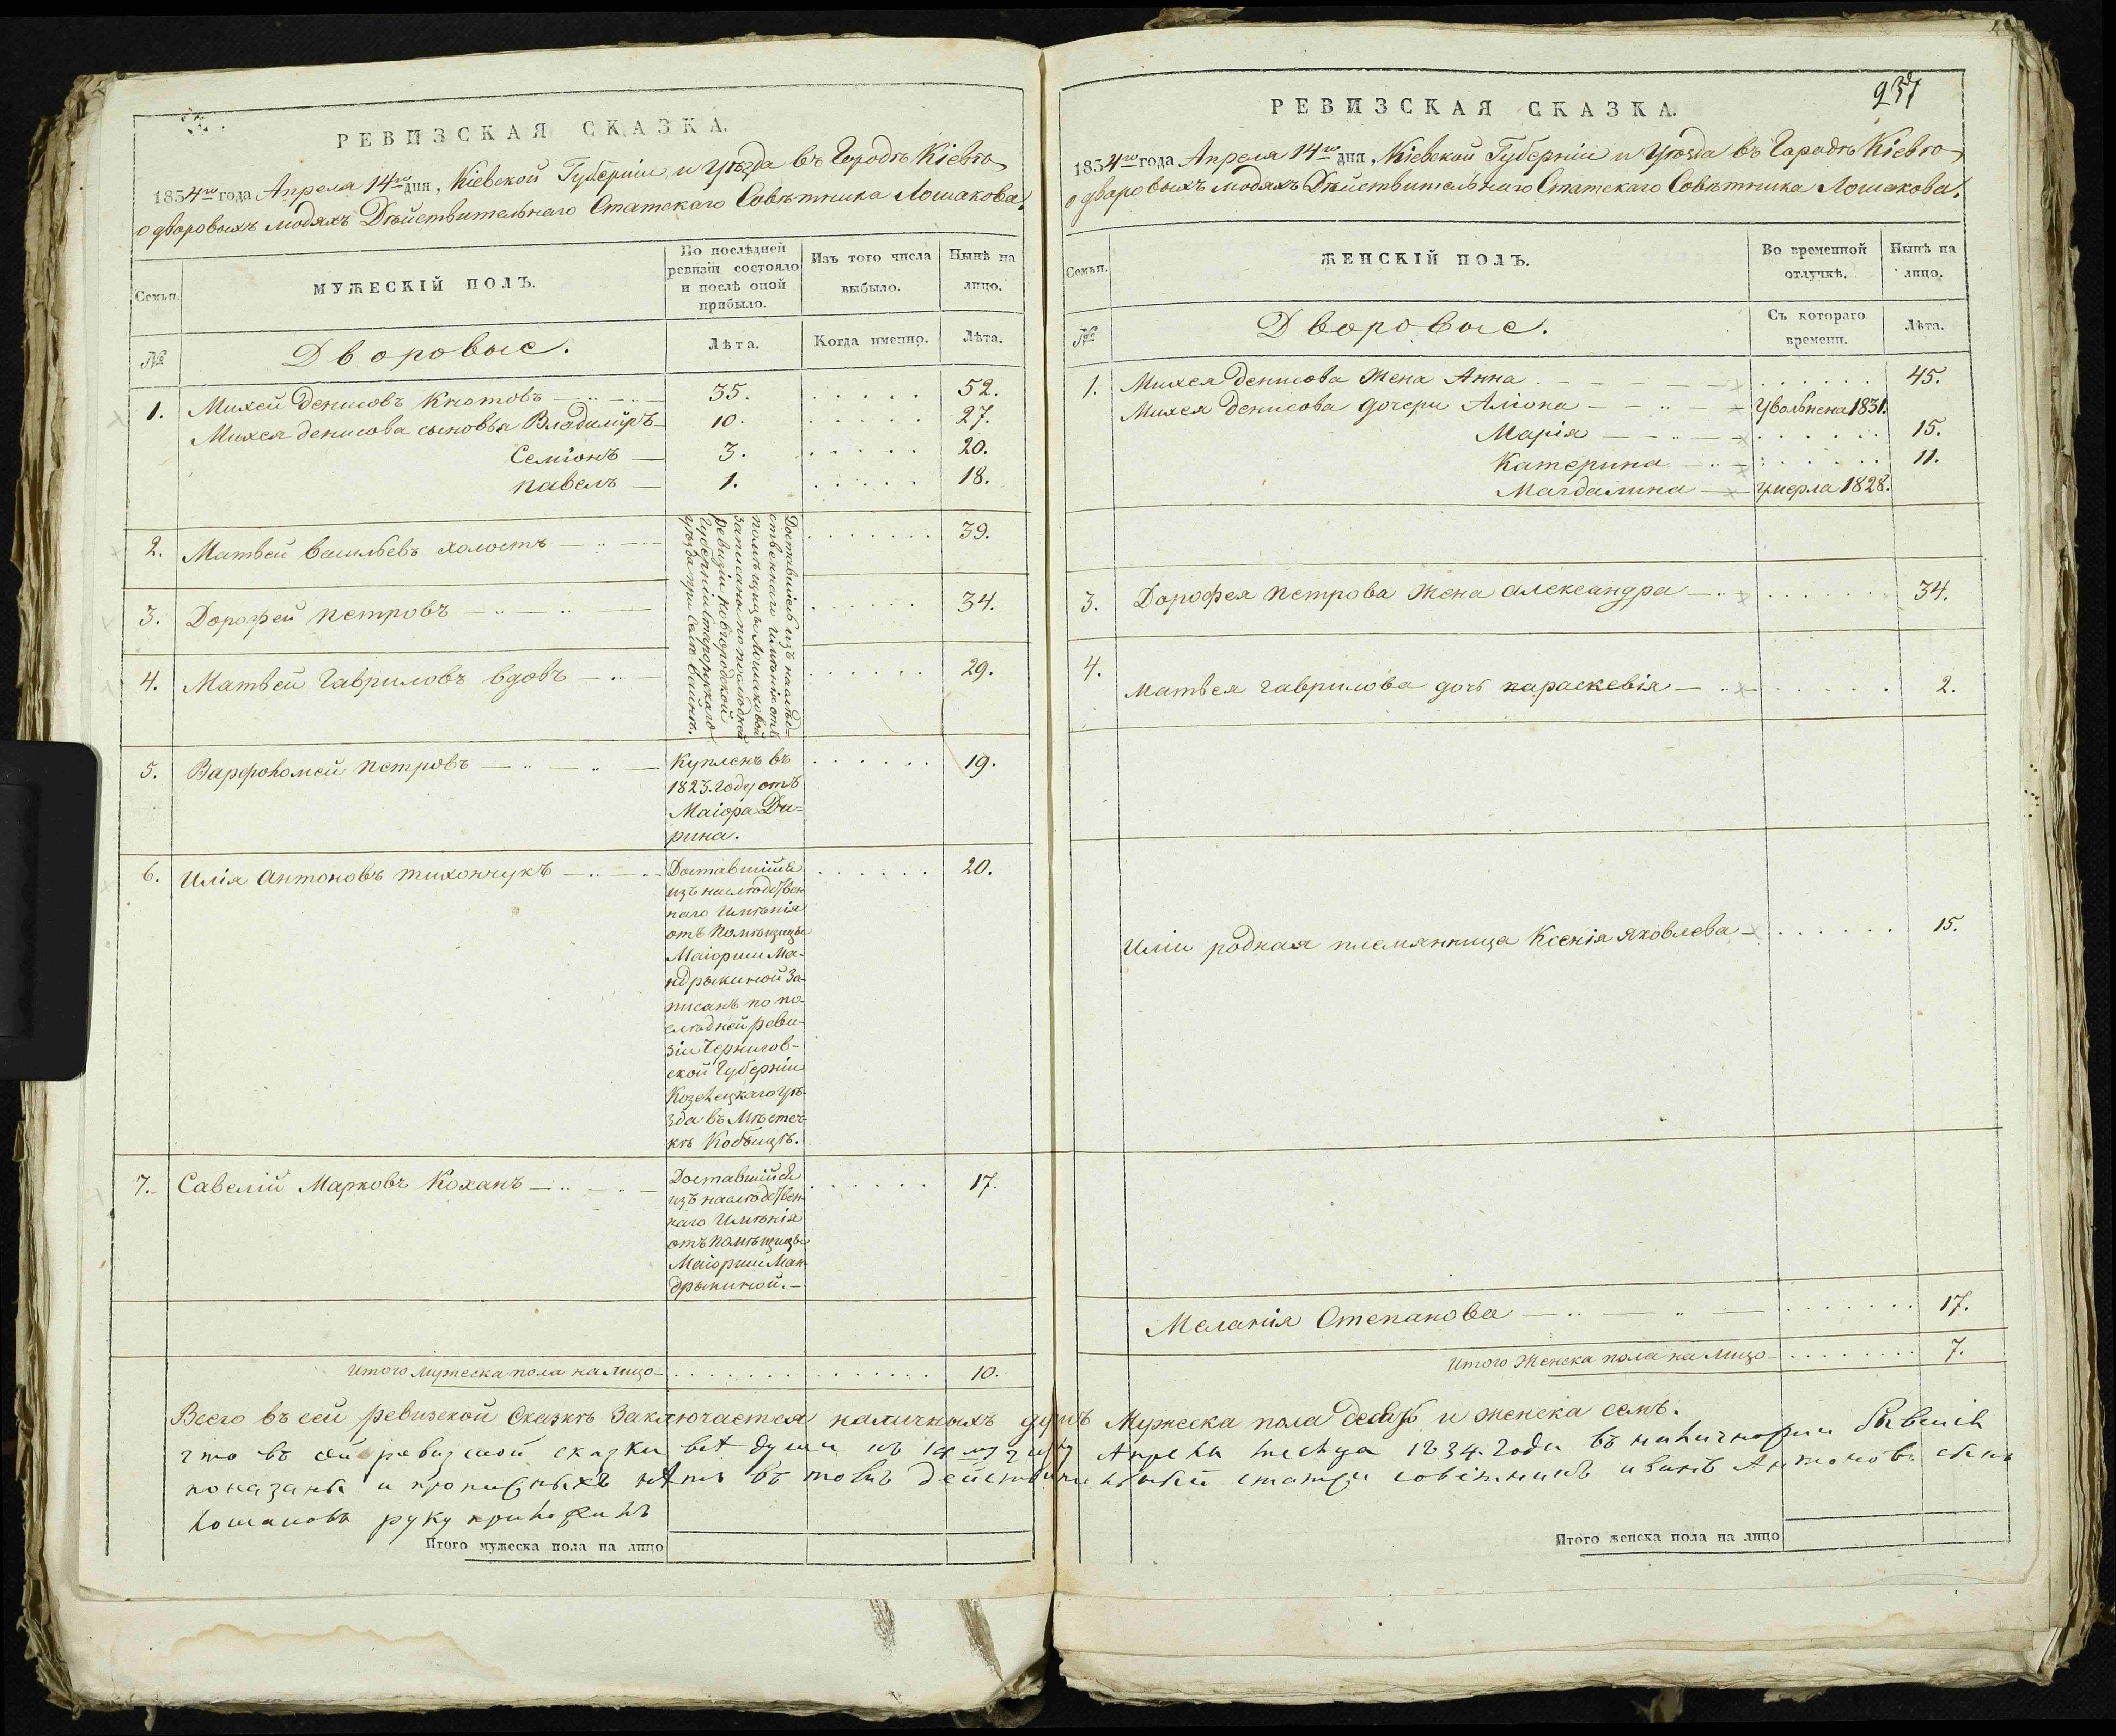 РЕВИЗСКАЯ СКАЗКА.
1834го года Апреля 14го дня, Кіевской Губерніи и Уѣзда въ Городѣ Кіевѣ
о дворовыхъ людяхъ Дѣйствительнаго Статскаго Совѣтника Лошакова.
Семьи.
МУЖЕСКІЙ ПОЛЪ.
По послѣдней
ревизіи состояло
и послѣ оной
прибыло.
Изъ того числа
выбыло.
Нынѣ на
лицо.
№
Дворовые.
Лѣта.
Когда именно.
Лѣта.
1. Михей Денисовъ Кнотовъ 35. 52.
Михея Денисова сыновья Владиміръ 10. 27.
Семіонъ 3. 20.
Павелъ 1. 18.
2. Матвей Васильевъ холостъ 39.
3. Дорофей Петровъ 34.
4. Матвей Гавриловъ вдовъ 29.
Доставшіесь изъ наслѣд=
ственнаго имѣнія отъ
помѣщицы Лошаковой
записано по послѣдней
ревизіи Новгородской
Губерніи Старорускаго
уѣзда при селе
5. Варфоломей Петровъ Купленъ въ 19.
1823. году отъ
Маіора Ди=
рина.
6. Илія Антоновъ Тихончукъ Доставшійся 20.
изъ наслѣдствен
наго имѣнія
отъ Помѣщицы
Маіорши Ма-
ндрыкиной за-
писанъ по по-
слѣдней реви-
зіи Чернигов-
ской Губерніи
Козелецкаго уѣ-
зда въ Мѣстеч-
кѣ Кобыщѣ.
7. Савелій Марковъ Коханъ Доставшійся 17.
изъ наслѣдствен
наго имѣнія
отъ Помѣщицы
Маіорши Ман
дрыкиной.
Итого мужеска пола на лицо 10.
РЕВИЗСКАЯ СКАЗКА.
237
1834го года Апреля 14го дня, Кіевской Губерніи и Уѣзда въ Городѣ Кіевѣ
о дворовыхъ людяхъ Дѣйствительнаго Статскаго Совѣтника Лошакова.
Семьи.
ЖЕНСКІЙ ПОЛЪ.
Во временной
отлучкѣ.
Нынѣ на
лицо.
№
Дворовые.
Съ котораго
времени.
Лѣта.
1. Михея Денисова жена Анна 45.
Михея Денисова дочери Аліона Увольнена 1831.
Марія 15.
Катерина 11.
Магдалина умерла 1828.
3. Дорофея Петрова жена Александра 34.
4.
Матвея Гаврилова дочь Параскевія 2.
Иліи родная племянница Ксенія Яковлева 15.
Меланія Степанова 17.
Итого женска пола на лицо 7.
Всего въ сей ревизской Сказкѣ Заключается наличныхъ душъ Мужеска пола десять и женска семь.
что въ сей ревизской сказки все души къ 14 му числу Апреля месяца 1834. года въ наличности бывшія
показаны и прописныхъ нетъ въ томъ действительный статски советникъ иванъ Антоновъ сынъ
Лошаковъ руку приложилъ
Итого мужеска пола на лицо
Итого женска пола на лицо